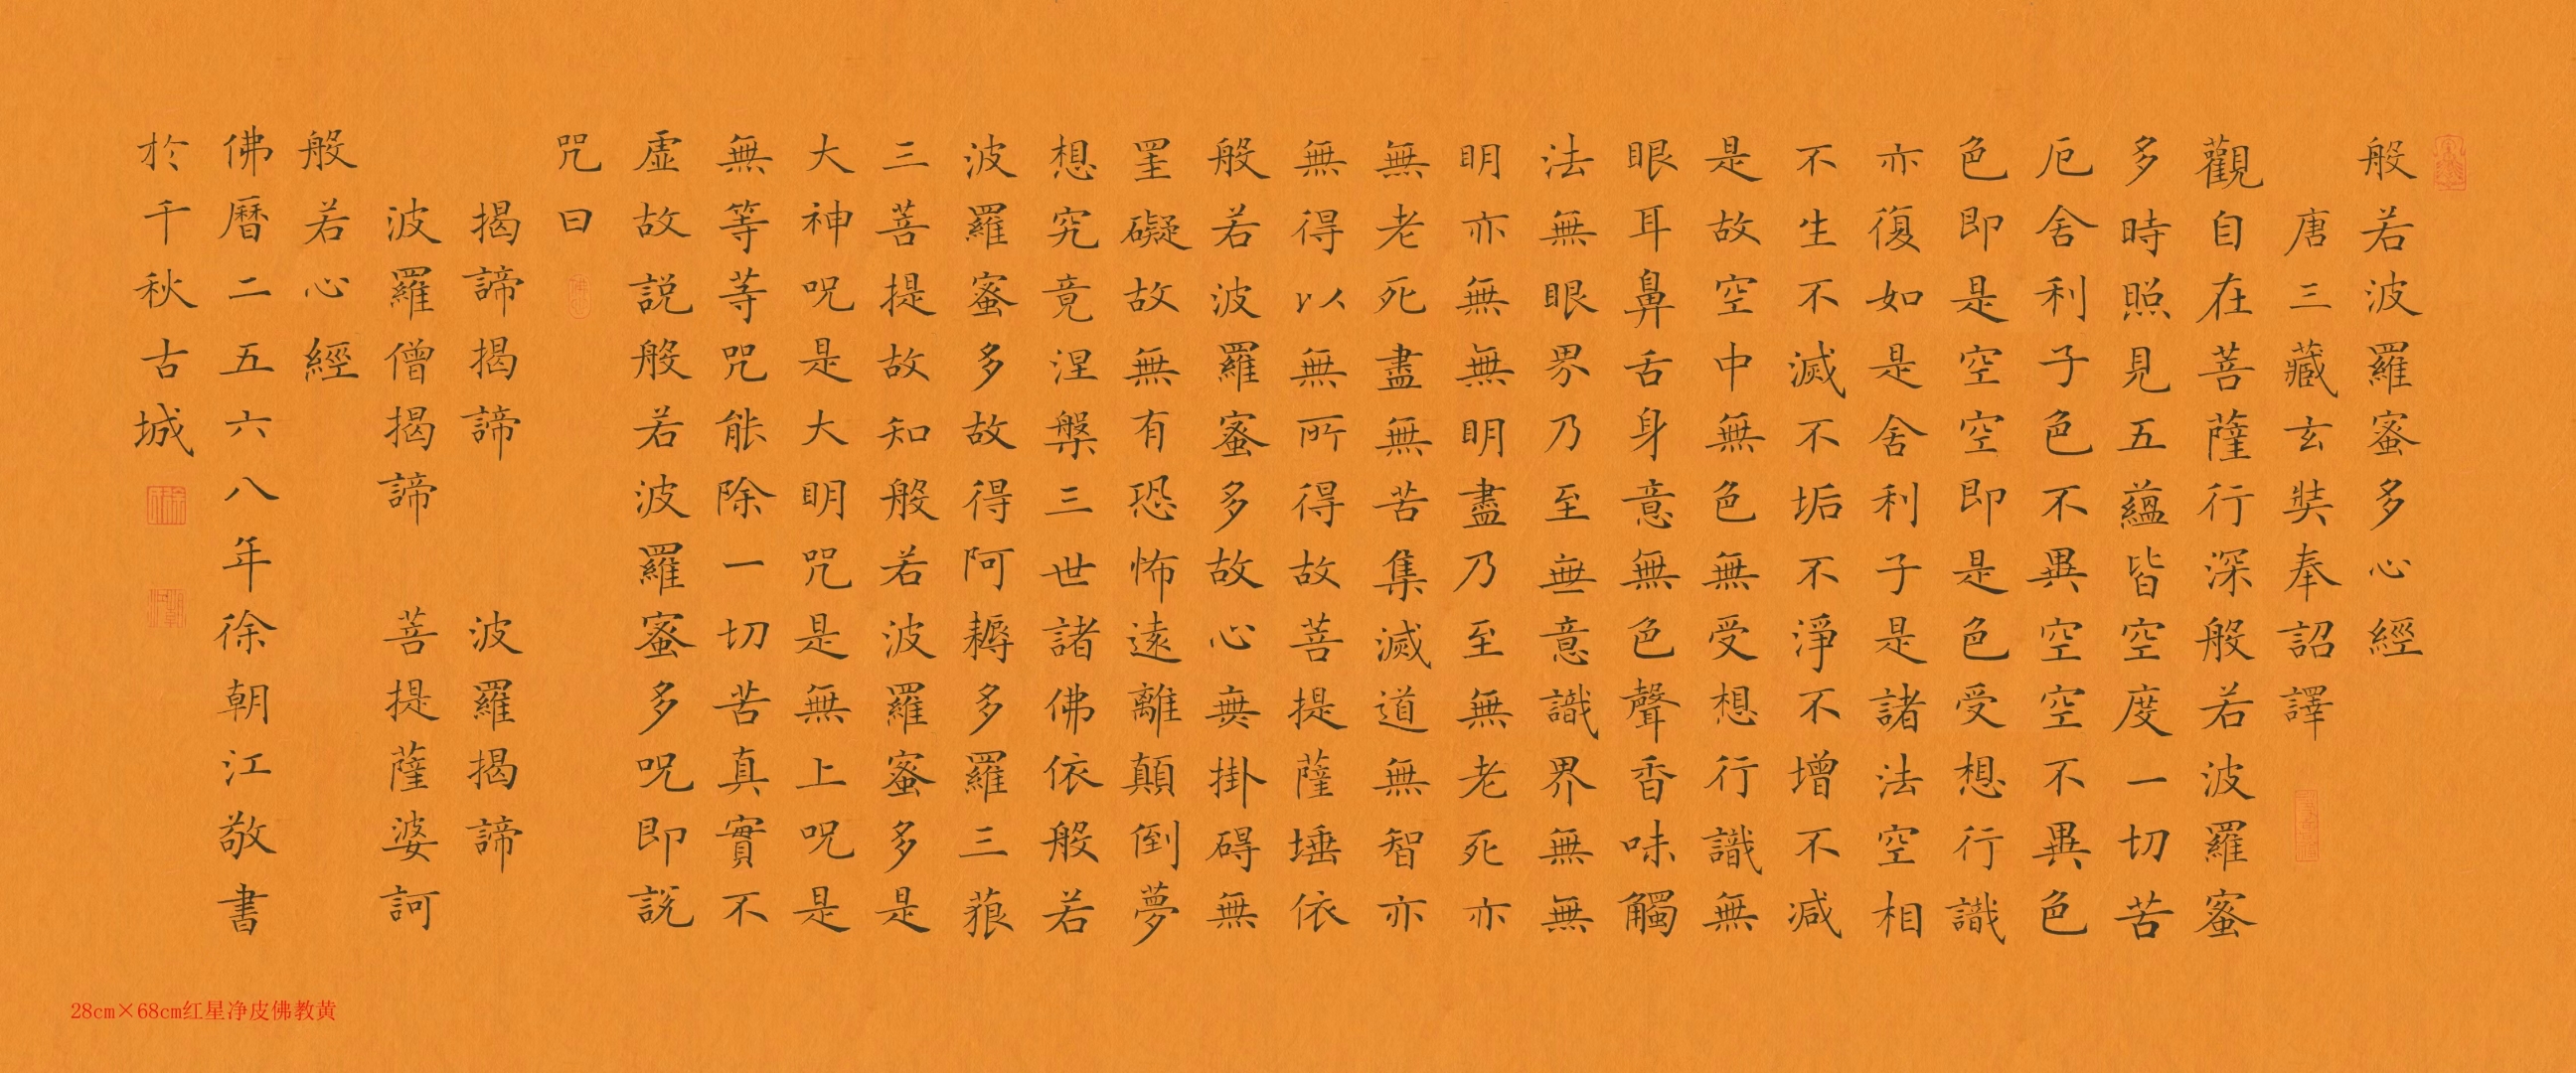 般若波羅蜜多心經
唐三藏玄奘奉詔譯
觀自在菩薩行深般若波羅蜜
多時照見五蘊皆空度一切苦
厄舍利子色不異空空不異色
色即是空空即是色受想行識
亦復如是舍利子是諸法空相
不生不滅不垢不淨不增不減
是故空中無色無受想行識無
眼耳鼻舌身意無色聲香味觸
法無眼界乃至無意識界無無
明亦無無明盡乃至無老死亦
無老死盡無苦集滅道無智亦
無得以無所得故菩提薩埵依
般若波羅蜜多故心無掛碍無
罣礙故無有恐怖遠離顛倒夢
想究竟涅槃三世諸佛依般若
波羅蜜多故得阿耨多羅三藐
三菩提故知般若波羅蜜多是
大神咒是大明咒是無上咒是
無等等咒能除一切苦真實不
虛故説般若波羅蜜多咒即説
咒曰
揭諦揭諦 波羅揭諦
波羅僧揭諦 菩提薩婆訶
般若心經
佛曆二五六八年徐朝江敬書
於千秋古城
28cm×68cm红星净皮佛教黄